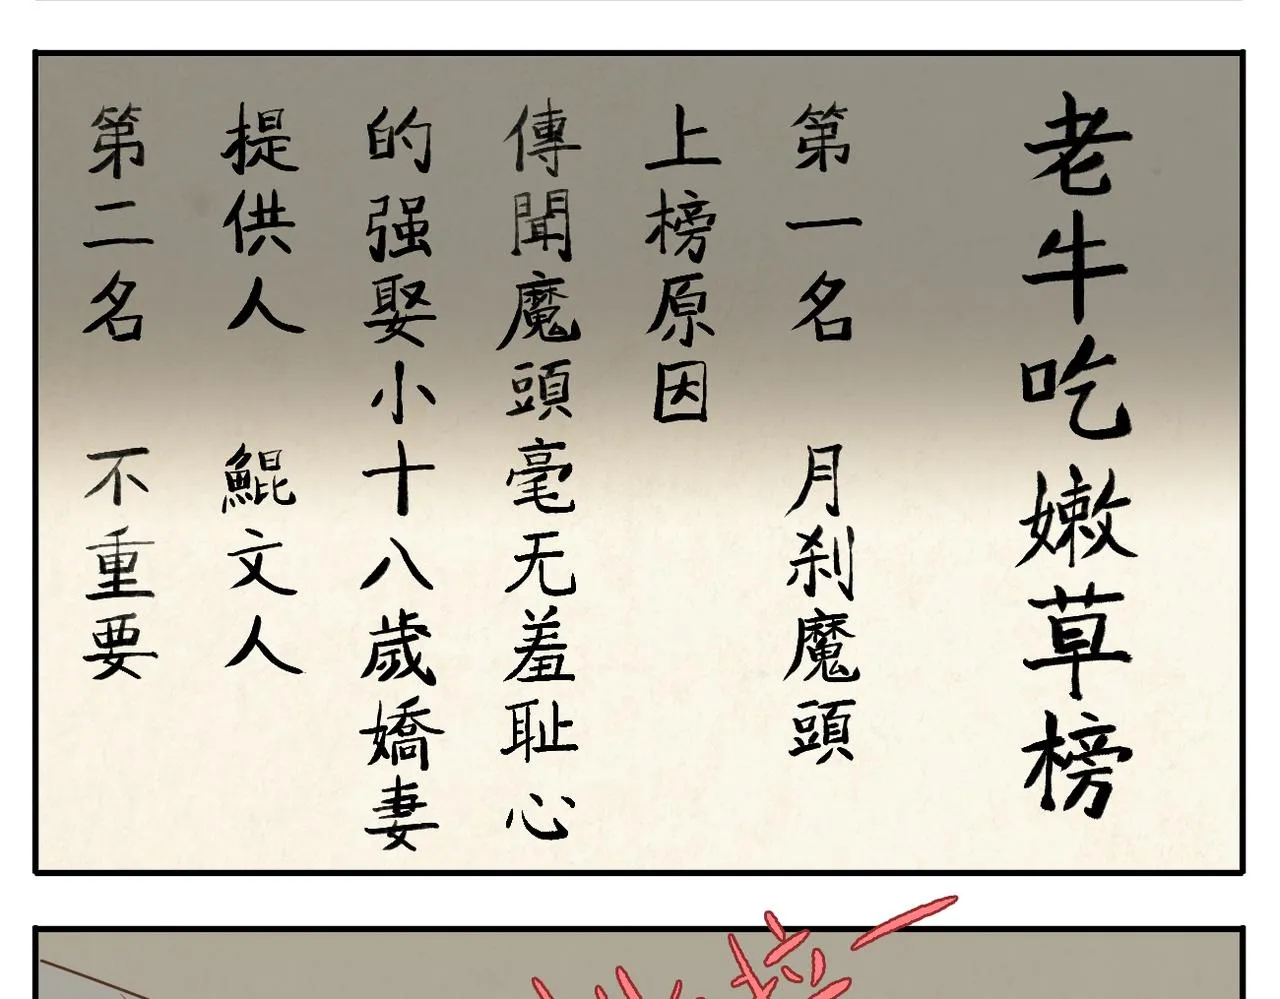 老牛吃嫩草榜
第一名 月刹魔頭
上榜原因
傳聞魔頭毫无羞耻心
的强娶小十八歲嬌妻
提供人 鯤文人
第二名 不重要